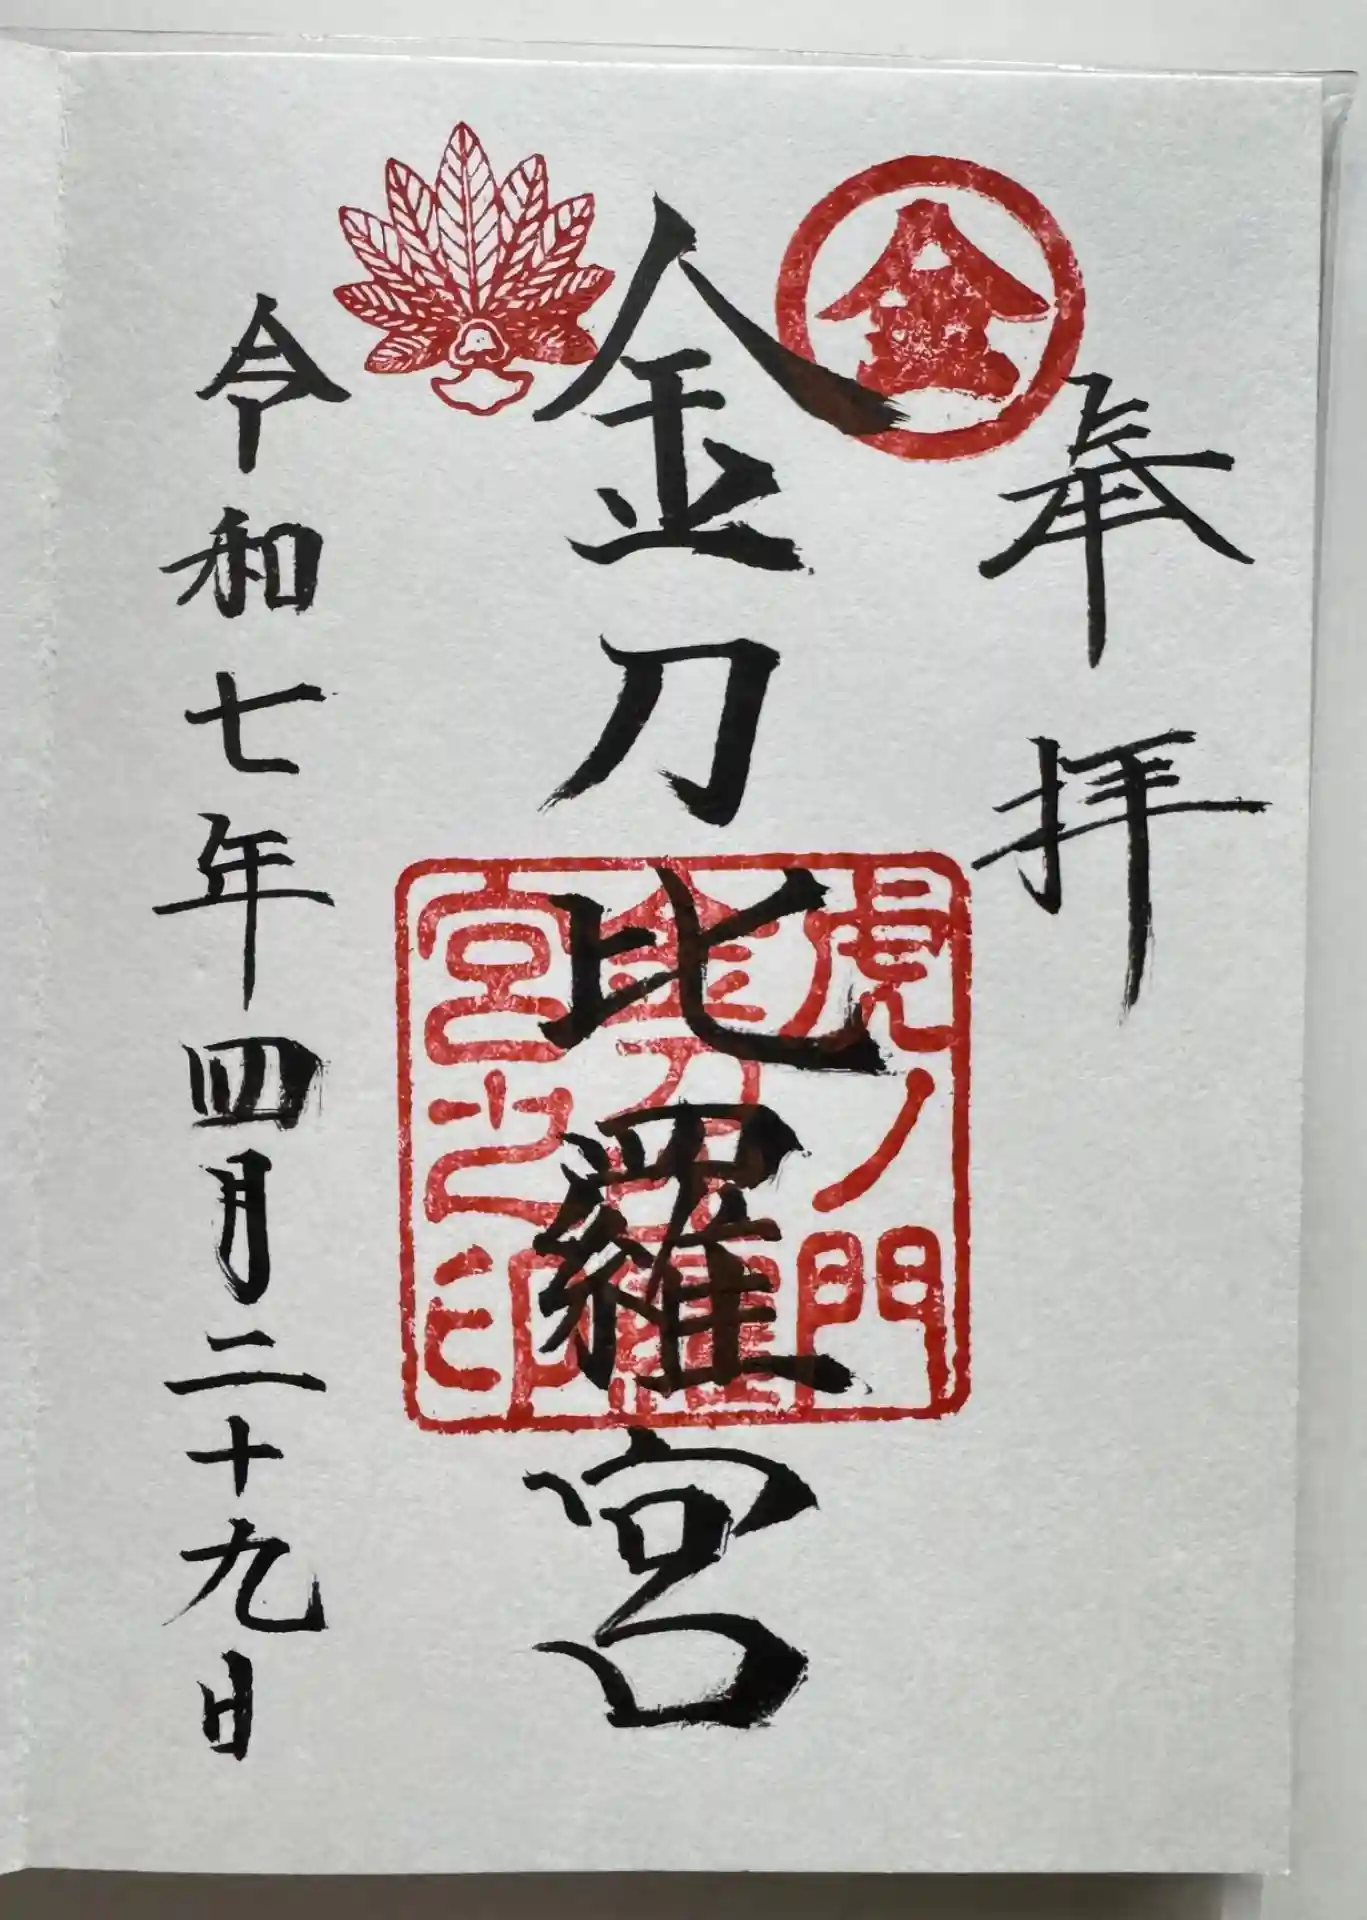 奉拝
金
金刀比羅宮
虎ノ門
金刀比羅
宮之印
令和七年四月二十九日